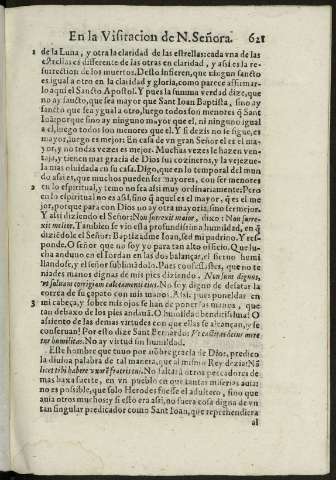 En la Visitacion de N. Señora. 621
1 de la Luna, y otra la claridad de las estrellas: cada vna de las
estrellas es differente de las otras en claridad, y assi es la re-
surrection de los muertos. Desto infieren, que ningun sancto
es igual a otro en la claridad y gloria, como parece affirmar-
lo aqui el Sancto Apostol. Y pues la summa verdad dize, que
no ay sancto, que sea mayor que Sant Ioan Baptista, sino ay
sancto que sea ygual a otro, luego todos son menores q̃ Sant
Ioā: porque sino ay ninguno mayor que el, ni ninguno igual
a el, luego todos son menores que el. Y si dezis no se sigue, es
mayor, luego es mejor: En casa de vn gran Señor el es el ma-
yor, y no todas vezes es mejor. Muchas vezes le hazen ven-
taja, y tienen mas gracia de Dios sus cozineros, y la vejezue-
la mas oluidada en su casa. Digo, que en lo temporal del mun
do assi es, que muchos pueden ser mayores, con ser menores
2 en lo espiritual, y temo no sea assi muy ordinariamente: Pero
en lo espiritual no es assi, sino q̃ aquel es el mayor, q̃ es el me
jor, porque para con Dios no ay otra mayoria, sino ser mejor.
Y assi diziendo el Señor: Non surrexit maior, dixo: Non surre-
xit melior. Tambien se vio esta profundissima humildad, en q̃
diziēdole el Señor: Baptizadme Ioan, sed mi padrino. Y res-
ponde. O señor que no soy yo para tan alto officio. Que lu-
cha anduuo en el Iordan en las dos balanças, el sieruo humi
llandose, y el señor sublimādolo. Pues confessastes, que no te
niades manos dignas de mis pies diziendo. Non sum dignus,
vt soluam corrigiam calceamenti eius. No soy digno de desatar la
correa de su çapato con mis manos. Assi pues poneldas en
3 mi cabeça, y sobre mis ojos se han de poner las manos, que
tan debaxo de los pies andauā. O humildad benditissima! O
assiento de las demas virtudes con que ellas se alcançan, y se
conseruan! Por ello dize Sant Bernardo:
tur humilitas. No ay virtud sin humildad.
Este hombre que tuuo por nōbre gracia de Dios, predico
la diuina palabra de tal manera, que al mismo Rey dezia: Nō
licet tibi habere vxorē fratris tui. No faltarā otros pecadores de
mas baxa suerte, en vn pueblo en que tantas miserias auia:
no es possible, que solo Herodes fuesse el adultero, sino que
auia otros muchos; y si esto era assi, no fuera cosa digna de vn
tan singular predicador como Sant Ioan, que reprehendiera
al